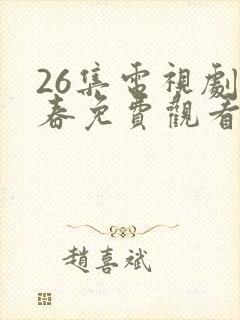 26集電視劇
春免費觀看
趙喜斌